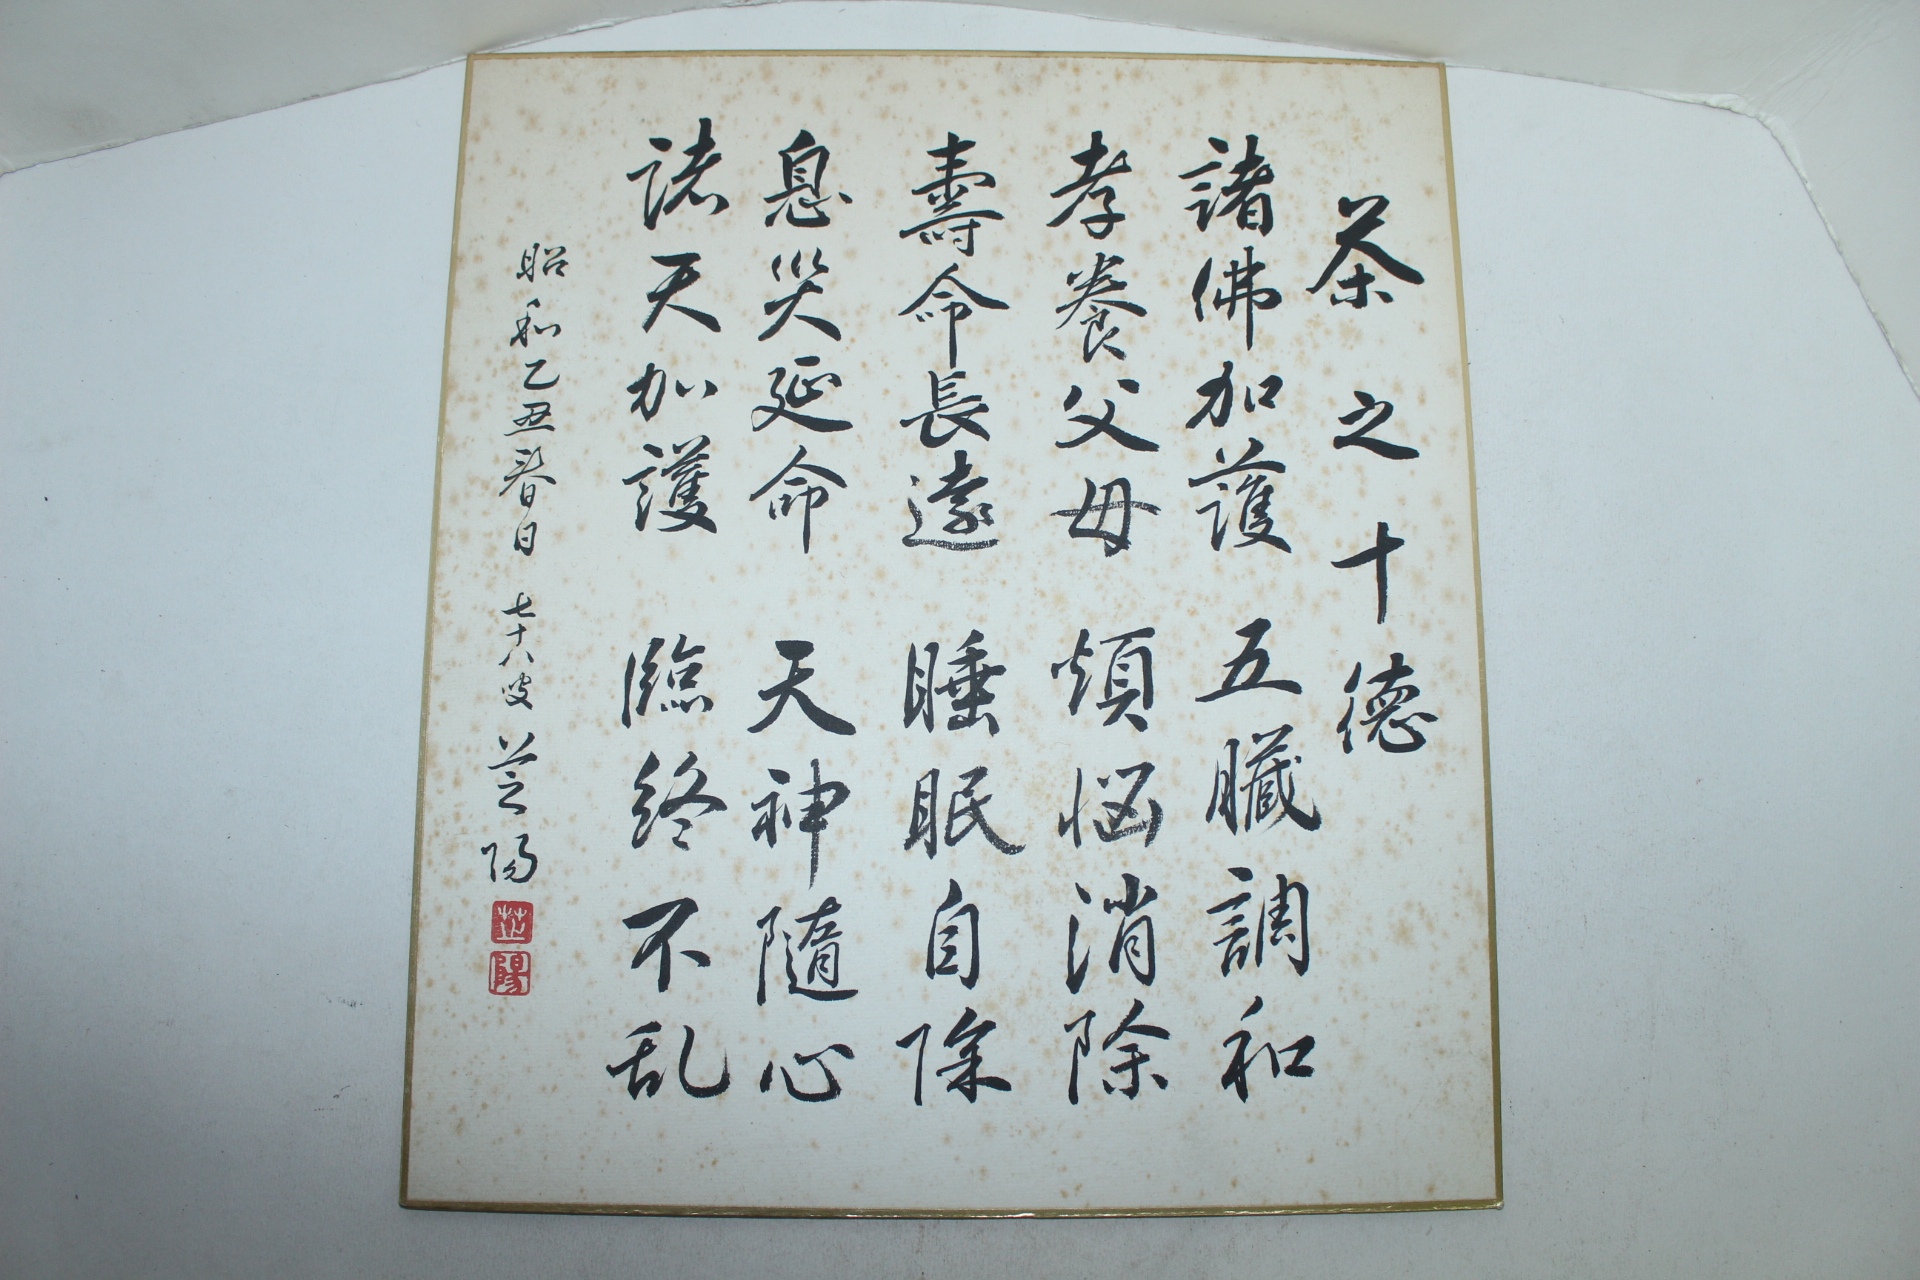 茶之十德
諸佛加護 五臓調和
孝養父母 煩悩消除
壽命長遠 睡眠自除
息災延命 天神隨心
諸天加護 臨終不乱
昭和乙丑春日 七十八叟 芝陽
芷
陽